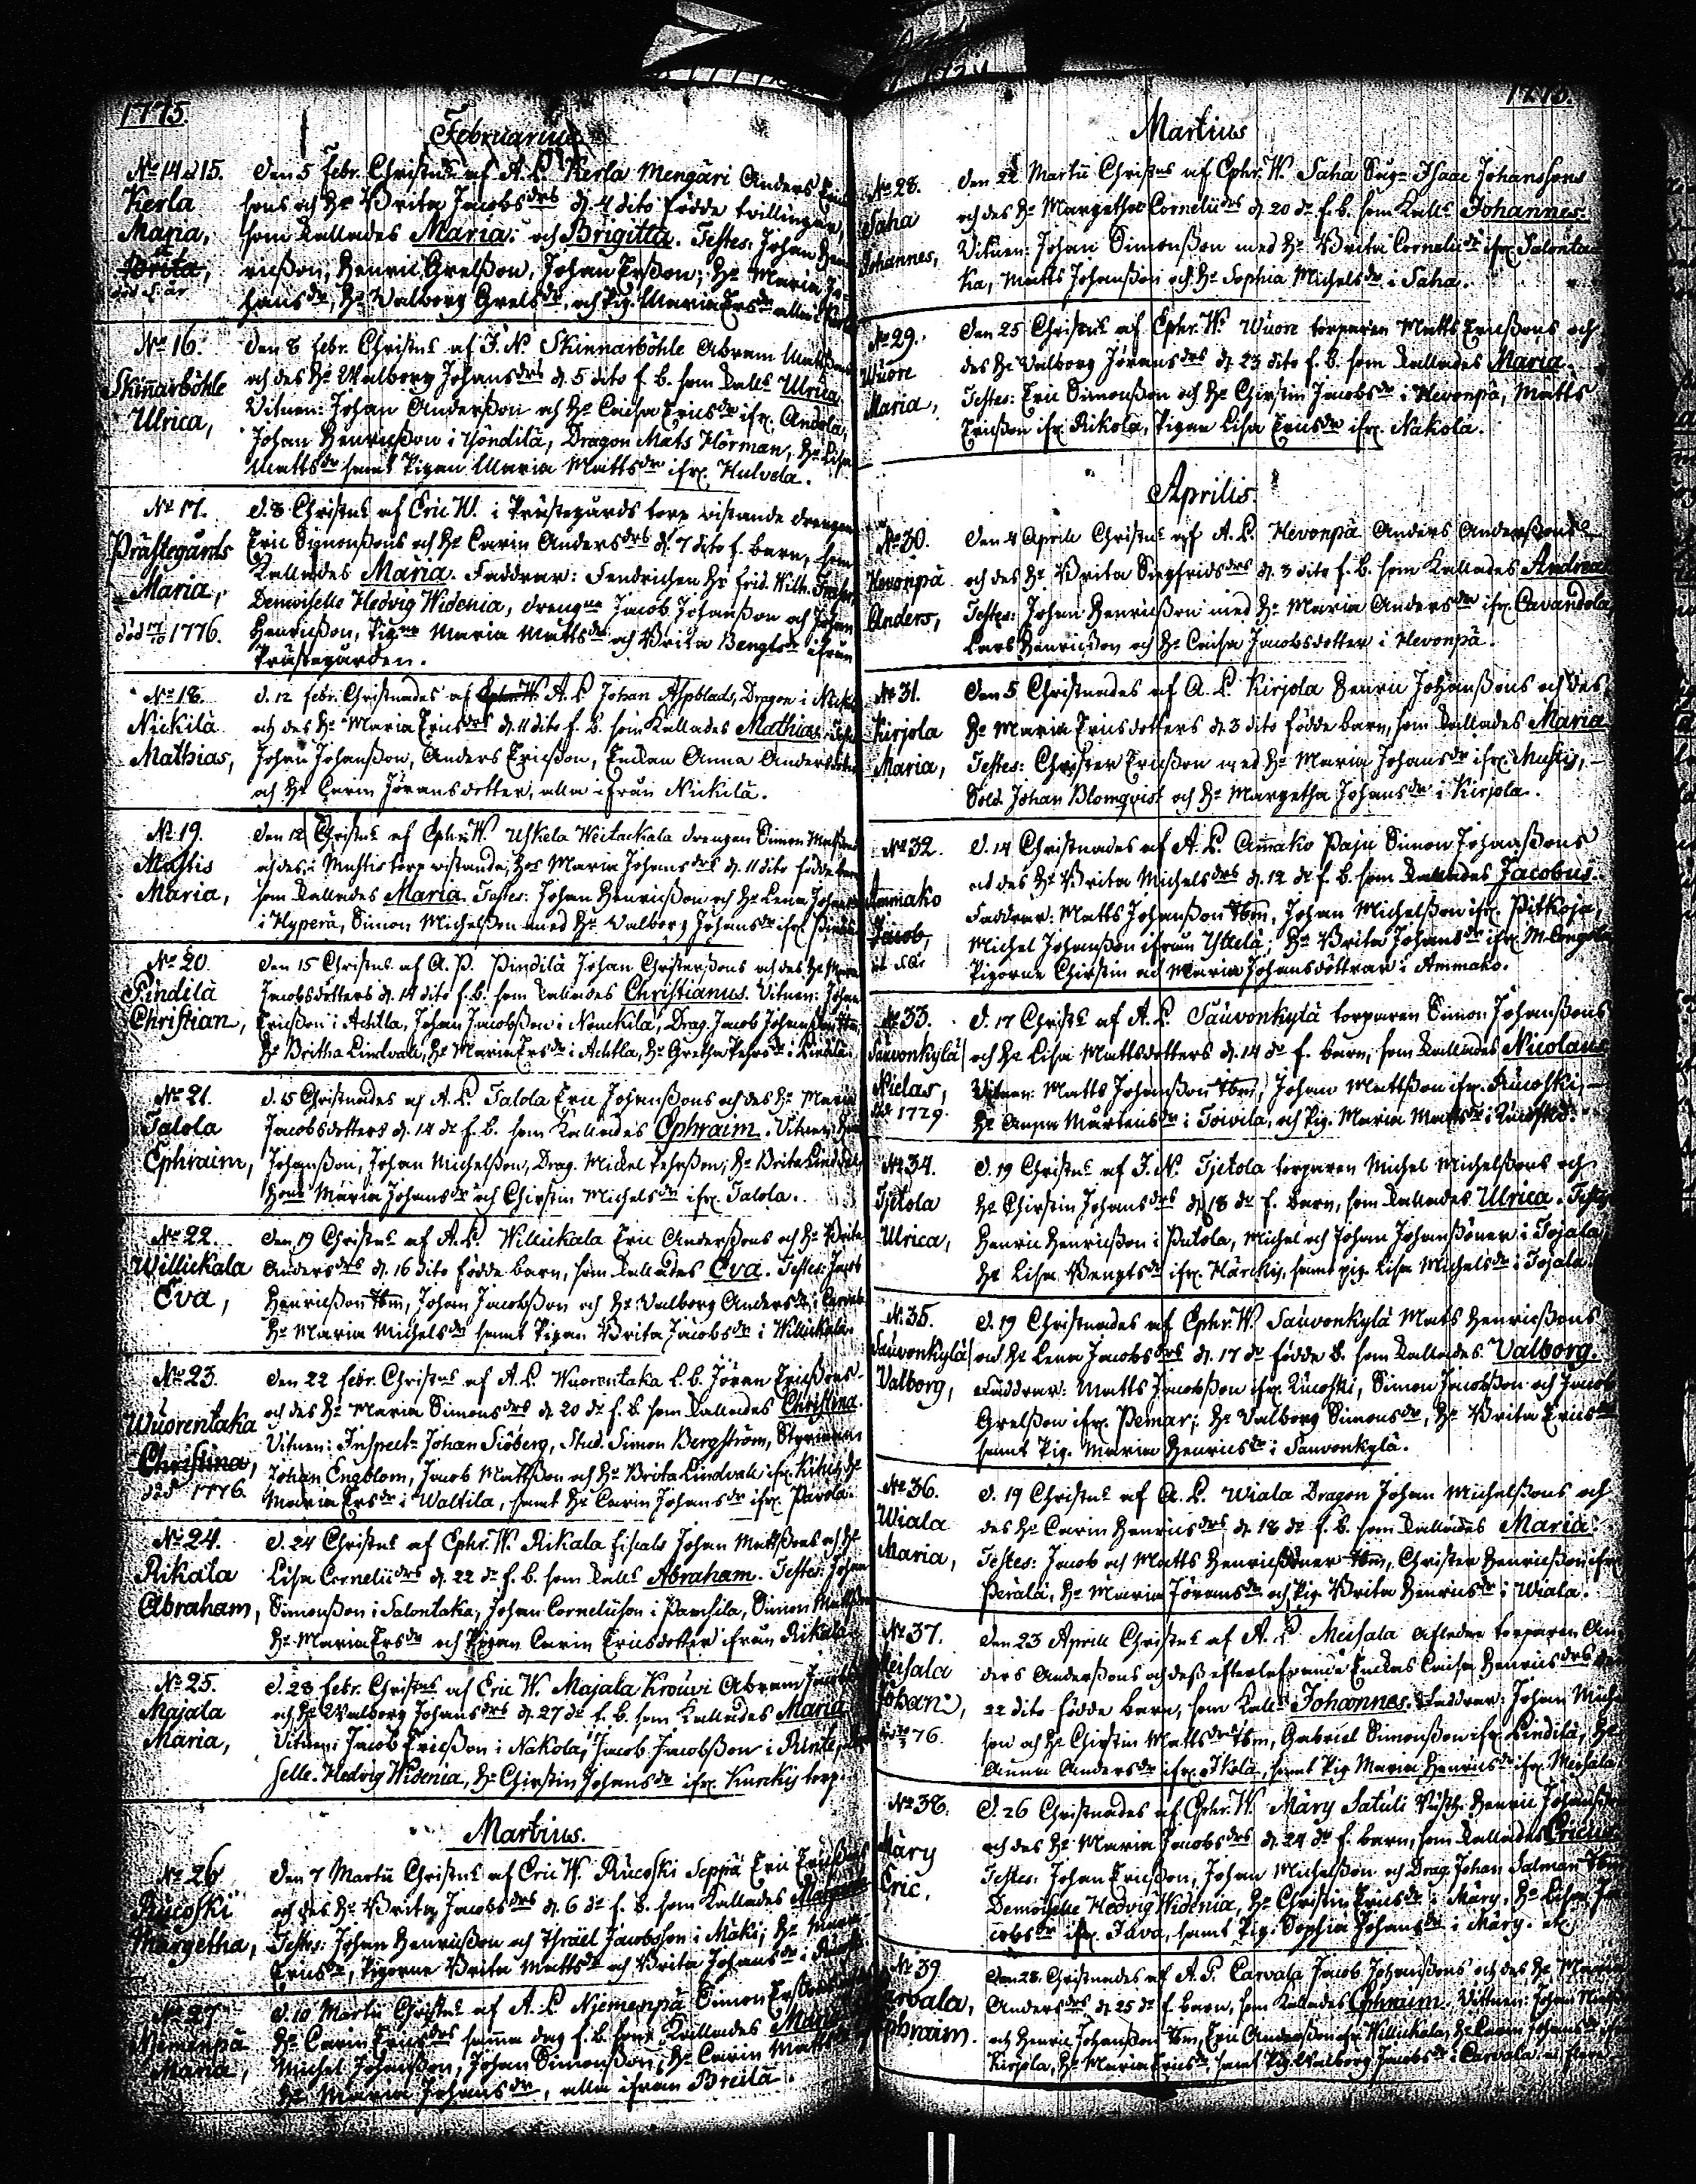 1775.
Februarius
No 14 & 15.
Kerla
Maria,
Brita,
Den 5 Febr. Christn. af A. L. Kerla Mengäri Anders
sons och Ho Brita Jacobsdrs d. 4 dito födde tvillingar,
som kallades Maria och Brigitta. Testes: Johan Hen
ricsson, Henric Grelsson, Johan Ersson; Ho Maria Jo
hansdr, Ho Valborg Grelsdr, och Pig. Maria Ersdr alla i
No 16.
Skinnarböhle
Ulrica,
Den 8 Febr. Christns af J. N. Skinnarböhle Abram
och des Ho Walborg Johansdrs d. 5 dito f. b. som kalls Ulrica
Vitnen: Johan Andersson och Ho Caisa Ericsdr ifr. Andola,
Johan Henricsson i Yöndilä, Dragon Mats Hörman, Ho Lisa
Mattsdr samt Pigan Maria Mattsdr ifr. Hulvela.
No 17.
Prästegårds
Maria,
död 1776.
D. 8 Christns af Eric W. i Prästegårds torp vistande drengen
Eric Simonssons och Ho Carin Andersdrs d. 7 dito f. barn, som
kallades Maria. Faddrar: Fendrichen Hr Frid. Wilh.
Demoiselle Hedvig Widenia, drengne Jacob Johansson och Johan
Henricsson, Pigne Maria Mattsdr och Brita Bengtsdr ifrån
Prästegården.
No 18.
Nickilä
Mathias,
d. 12 Febr. Christnades af Ephr. W. A. L. Johan Aspblads, Dragon i
och des Ho Maria Ericsdrs d. 11 dito f. b. som kallades Mathias.
Johan Johansson, Anders Ericsson, Enckan Anna Anders
och Ho Carin Jöransdotter, alla ifrån Nickilä.
No 19.
Mustis
Maria,
Den 12 Christns af Ephr. W. Uskela Weitackala drengen Simon
och des, i Mustis torp vistande, Hos Maria Johansdrs d. 11 dito födde
som kallades Maria. Testes: Johan Henricsson och Ho Lena
i Hyperä, Simon Michelsson med Ho Valborg Johansdr ifr.
No 20.
Pindilä
Christian,
Den 15 Christns af A. P. Pindilä Johan Christerssons och des Ho
Jacobsdotters d. 14 dito f. b. som kallades Christianus. Vitnen: Johan
Ericsson i Achtla, Johan Jacobsson i Nenckilä, Drag. Jacob
Ho Britha Lindvall, Ho Maria Ersdr i Achtla, Ho Gretha Pehrsdr i
No 21.
Talola
Ephraim,
d. 15 Christnades af A. L. Talola Eric Johanssons och des Ho Maria
Jacobsdotters d. 14 do f. b. som kallades Ephraim. Vitnen:
Johansson, Johan Michelsson, Drag. Mickel Pehrsson, Ho Brita
Hos Maria Johansdr och Chirstin Michelsdr ifr. Talola.
No 22.
Willickala
Eva,
Den 19 Christns af A. L. Willickala Eric Anderssons och Ho Brita
Andersdrs d. 16 dito födde barn, som kallades Eva. Testes: Jacob
Henricsson ibm, Johan Jacobsson och Ho Valborg Andersdr i
Ho Maria Michelsdr samt Pigan Brita Jacobsdr i Willickala.
No 23.
Wuorentaka
Christina,
död 1776.
Den 22 Febr. Christns af A. L. Wuorentaka L. b. Jöran Ericssons
och des Ho Maria Simonsdrs d. 20 do f. b. som kallades Christina.
Vitnen: Inspectr Johan Siöberg, Stud. Simon Bergström,
Johan Engblom, Jacob Mattsson och Ho Brita Lindvall ifr.
Maria Ersdr i Waltila, samt Ho Carin Johansdr ifr. Pärola.
No 24.
Rikala
Abraham,
d. 24 Christns af Ephr. W. Rikala fiscals Johan Mattssons och Ho
Lisa Corneliidrs d. 22 do f. b. som kalls Abraham. Testes: Johan
Simonsson i Salontaka, Johan Corneliison i Parsila, Simon
Ho Maria Ersdr och Pigan Carin Ericsdotter ifrån Rikala.
No 25.
Majala
Maria,
d. 28 Febr. Christns af Eric W. Majala Krouvi Abram
och Ho Walborg Johansdrs d. 27 do f. b. som kallades Maria
Vitnen: Jacob Ericsson i Nakola, Jacob Jacobsson i
selle. Hedvig Widenia, Ho Chirstin Johansdr ifr. Kurckis torp.
Martius.
No 26
Rucoski
Margetha,
Den 7 Martii Christns af Eric W. Rucoski Seppä Eric
och des Ho Brita Jacobsdrs d. 6 do f. b. som kallades
Testes: Johan Henricsson och Israel Jacobsson i Mäki; Ho Maria
Ericsdr, Pigorne Brita Mattsdr och Brita Johansdr i
No 27
Njemenpä
Maria,
d. 10 Martii Christns af A. L. Njemenpä Simon
Ho Carin Ericsdrs samma dag f. b. som kallades Maria
Michel Johansson, Johan Simonsson, Ho Carin
Ho Maria Johansdr, alla ifrån Breilä.
1775.
Martius
No 28.
Saha
Johannes,
Den 22 Martii Christns af Ephr. W. Saha Isaac Johanssons
och des Ho Margetha Corneliidrs d. 20 do f. b. som kalls Johannes.
Vitnen: Johan Simonsson med Ho Brita Corneliidr ifr. Salonta
ka, Matts Johansson och Ho Sophia Michelsdr i Saha.
No 29.
Wuore
Maria,
Den 25 Christns af Ephr. W. Wuore torparen Matts Ericssons och
des Ho Valborg Jöransdrs d. 23 dito f. b. som kallades Maria.
Testes: Eric Simonsson och Ho Chirstin Jacobsdr i Hevonpä, Matts
Ericsson ifr. Rikola, Pigan Lisa Ericsdr ifr. Nakola.
Aprilis
No 30.
Hevonpä
Anders,
Den 4 Aprill Christns af A. L. Hevonpä Anders Anderssons
och des Ho Brita Siegfridsdrs d. 3 dito f. b. som kallades Andreas
Testes: Johan Henricsson med Ho Maria Andersdr ifr. Cavandola,
Lars Henricsson och Ho Caisa Jacobsdotter i Hevonpä.
No 31.
Kirjola
Maria,
Den 5 Christnades af A. L. Kirjola Henric Johanssons och des
Ho Maria Ericsdotters d. 3 dito födde barn, som kallades Maria
Testes: Christer Ericsson med Ho Maria Johansdr ifr. Mustis,
Sold. Johan Blomqvist och Ho Margetha Johansdr i Kirjola.
No 32.
Ammako
Jacob,
d. 14 Christnades af A. L. Ammako Paju Simon Johanssons
och des Ho Brita Michelsdrs d. 12 do f. b. som kallades Jacobus.
Faddrar: Matts Johansson ibm, Johan Michelsson ifr. Pitkoja,
Michel Johansson ifrån Yttelä; Ho Brita Johansdr ifr.
Pigorne Chirstin och Maria Johansdöttrar i Ammako.
No 33.
Sauvonkylä
Niclas,
d. 17 Christs af A. L. Sauvonkylä torparen Simon Johanssons
och Ho Lisa Mattsdotters d. 14 do f. barn, som kallades Nicolaus
Vitnen: Matts Johansson ibm, Johan Mattsson ifr. Rucoski,
Ho Anna Mårtensdr i Toivila, och Pig. Maria Mattsdr i Rucoski.
No 34.
Tjetola
Ulrica,
d. 19 Christns af J. N. Tjetola torparen Michel Michelssons och
Ho Chirstin Johansdrs d. 18 do f. barn, som kallades Ulrica. Testes
Henric Henricsson i Putola, Michel och Johan Johanssöner i Tojala
Ho Lisa Bengtsdr ifr. Härckis, samt pig. Lisa Michelsdr i Tojala.
No 35.
Sauvonkylä
Valborg,
d. 19 Christnades af Ephr. W. Sauvonkylä Mats Henricssons
och Ho Lena Jacobsdrs d. 17 do födde b. som kallades Valborg.
Faddrar: Matts Jacobsson ifr. Rucoski, Simon Jacobsson och Jacob
Grelsson ifr. Pemar; Ho Valborg Simonsdr, Ho Brita Ericsdr
samt Pig. Maria Henricsdr i Sauvonkylä.
No 36.
Wiala
Maria,
d. 19 Christns af A. L. Wiala Dragon Johan Michelssons och
des Ho Carin Henricsdrs d. 18 do f. b. som kallades Maria.
Testes: Jacob och Matts Henricssöner ibm, Christer Henricsson ifr.
Perälä, Ho Maria Jöransdr och Pig. Brita Henricsdr i Wiala.
No 37.
Meisala
Johan,
76.
Den 23 Aprill Christns af A. L. Meisala afledne torparen An
ders Anderssons och dess efterlefvande Enckas Caisa Henricsdrs
22 dito födde barn, som kalls Johannes. Faddrar: Johan
son och Ho Chirstin Mattsdr ibm, Gabriel Simonsson ifr. Lindilä, Ho
Anna Andersdr ifr. Ikola, samt Pig. Maria Henricsdr ifr. Meisala
No 38.
Märy
Eric,
d. 26 Christnades af Ephr. W. Märy Satuli Henric
och des Ho Maria Jacobsdrs d. 24 do f. barn, som kallades Ericus.
Testes: Johan Ericsson, Johan Michelsson och Drag. Johan Salman ibm
Demoiselle Hedvig Widenia, Ho Christin Ericsdr i Märy, Ho Lisa Ja
cobsdr ifr. Java, samt Pig. Sophia Johansdr i Märy.
No 39
Carvala,
Ephraim.
Den 28. Christnades af A. P. Carvala Jacob Johanssons och des Ho Maria
Andersdrs d. 25 do f. barn, som kallades Ephraim. Vittnen: Johan
och Henric Johansson ibm, Eric Andersson ifr. Willickala, Ho Carin Johansdr
Kirjola, Ho Maria Ericsdr samt Pig. Valborg Jacobsdr i Carvala